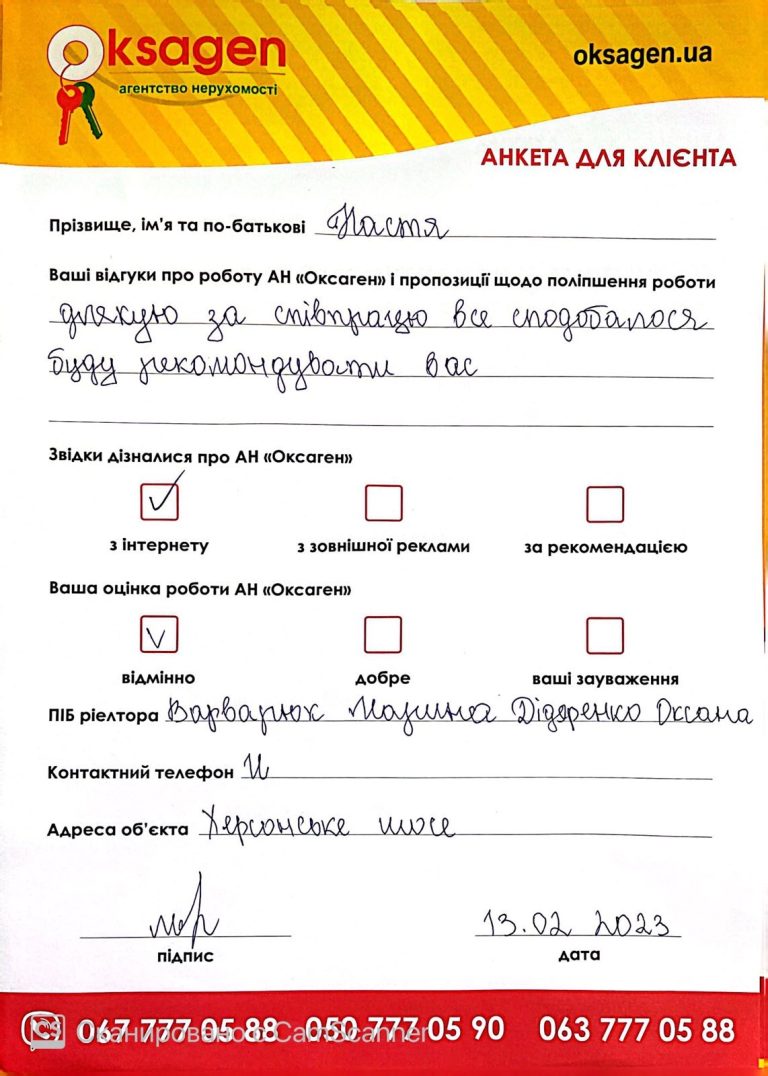 Oksagen
агентство нерухомості
oksagen.ua
АНКЕТА ДЛЯ КЛІЄНТА
Прізвище, ім'я та по-батькові Настя
Ваші відгуки про роботу АН «Оксаген» і пропозиції щодо поліпшення роботи
дякую за співпрацю все сподобалося
буду рекомондувати вас
Звідки дізналися про АН «Оксаген»
з інтернету з зовнішної реклами за рекомендацією
Ваша оцінка роботи АН «Оксаген»
відмінно добре ваші зауваження
ПІБ ріелтора Варварюк Марина Дідеренко Оксана
Контактний телефон
Адреса об'єкта Херсонське шосе
13.02 2023
підпис дата
067 777 05 88 050 777 05 90 063 777 05 88
CS Сканировано с CamScanner